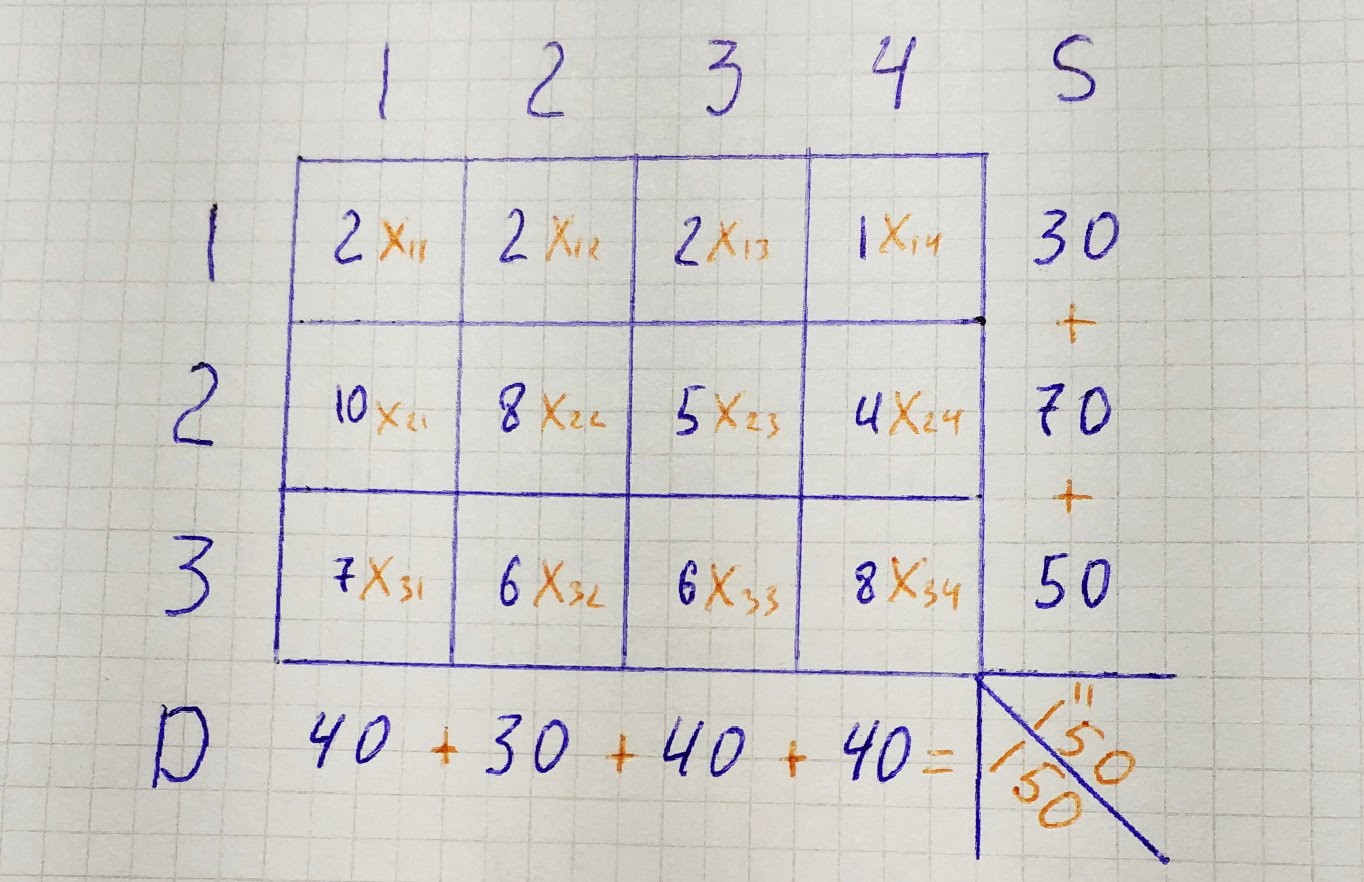 1 2 3 4 S
1 2X₁₁ 2X₁₂ 2X₁₃ 1X₁₄ 30
+
2 10X₂₁ 8X₂₂ 5X₂₃ 4X₂₄ 70
+
3 7X₃₁ 6X₃₂ 6X₃₃ 8X₃₄ 50
"
D 40 + 30 + 40 + 40 = 150
150